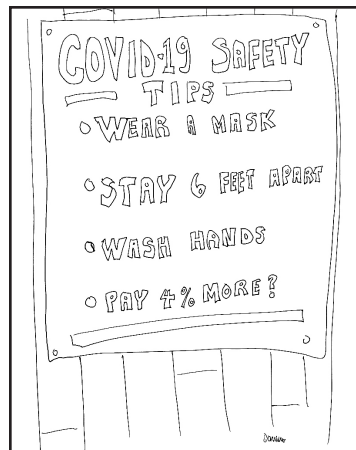 COVID-19 SAFETY
TIPS
WEAR A MASK
STAY 6 FEET APART
WASH HANDS
PAY 4% MORE?